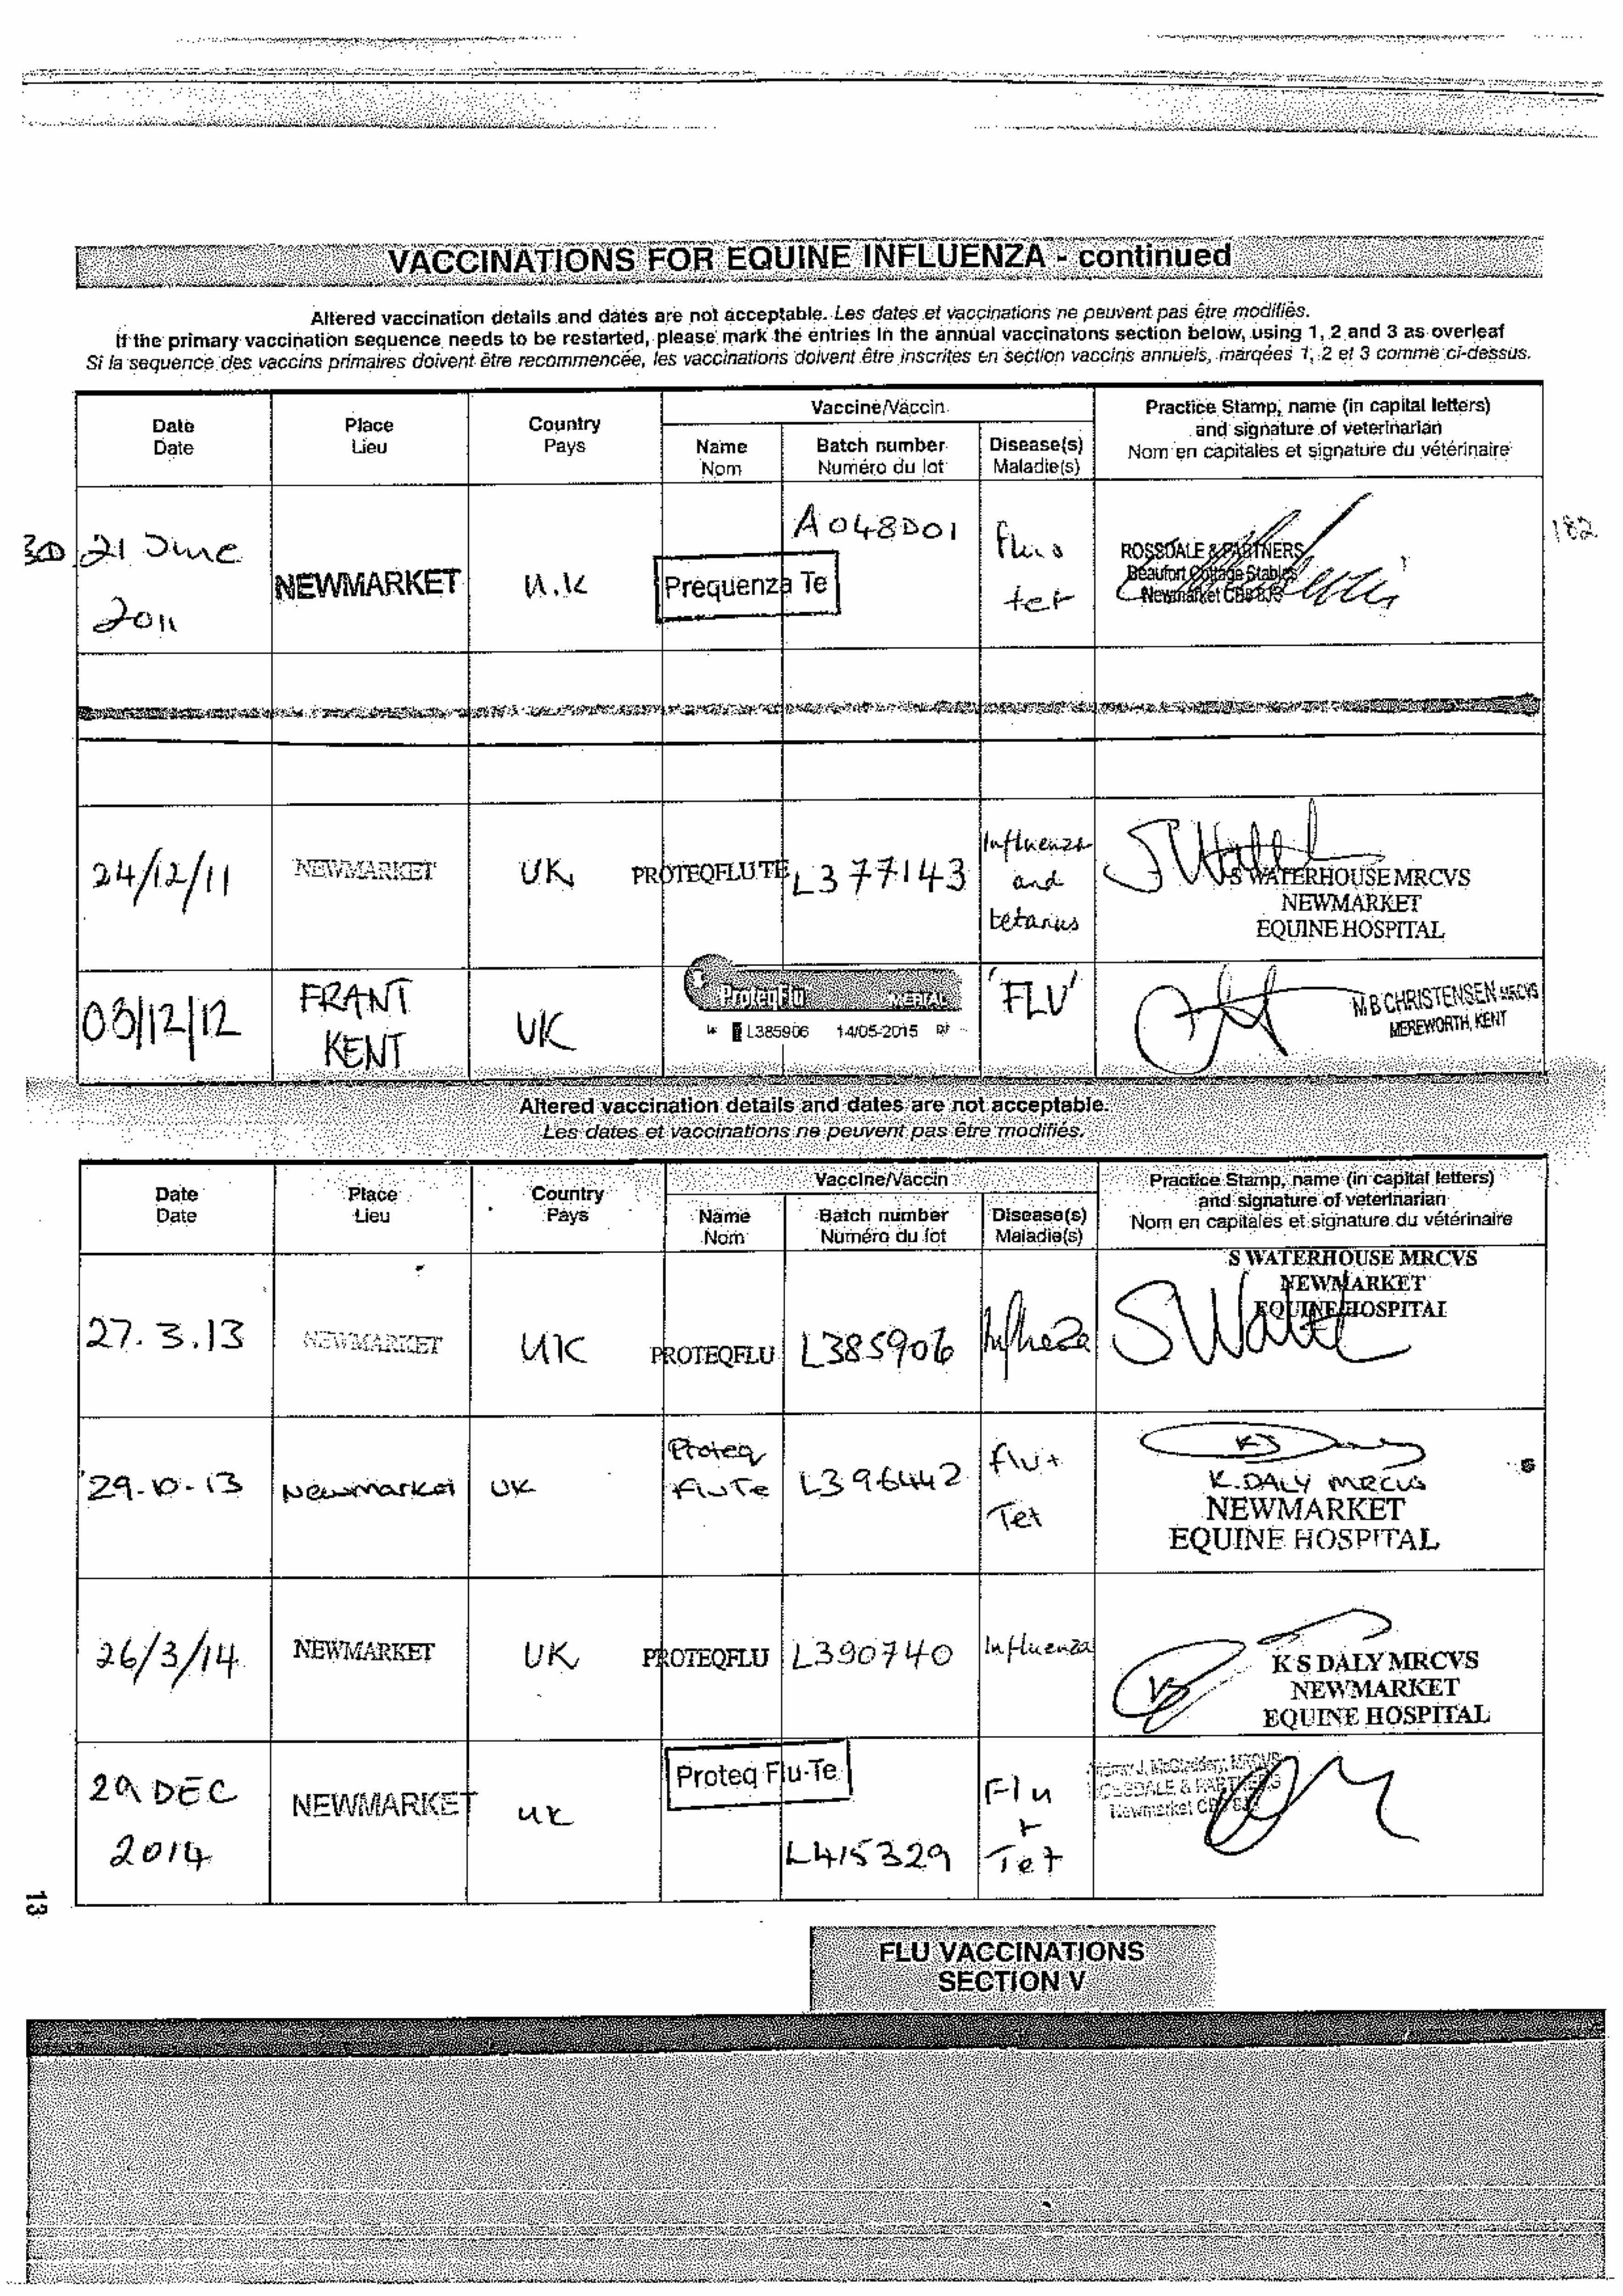 VACCINATIONS FOR EQUINE INFLUENZA - continued
Altered vaccination details and dates are not acceptable. Les dates et vaccinations ne peuvent pas être modifiés.
If the primary vaccination sequence needs to be restarted, please mark the entries in the annual vaccinatons section below, using 1, 2 and 3 as overleaf
Si la sequence des vaccins primaires doivent être recommencée, les vaccinations doivent être inscrites en section vaccins annuels, marqées 1, 2 et 3 comme ci-dessus.
Date
Date
Place
Lieu
Country
Pays
Vaccine/Vaccin
Name
Nom
Batch number
Numéro du lot
Disease(s)
Maladie(s)
Practice Stamp, name (in capital letters)
and signature of veterinarian
Nom en capitales et signature du vétérinaire
21 June
2011
NEWMARKET
U.K
Prequenza Te
A048D01
flu &
tet
ROSSDALE & PARTNERS
Beaufort Cottage Stables
Newmarket CB8 8JS
182
24/12/11
NEWMARKET
UK
PROTEQFLU TE
L377143
Influenza
and
tetanus
S WATERHOUSE MRCVS
NEWMARKET
EQUINE HOSPITAL
03/12/12
FRANT
KENT
UK
ProteqFlu
MERIAL
L385906 14/05-2015
'FLU'
M B CHRISTENSEN MRCVS
MEREWORTH, KENT
Altered vaccination details and dates are not acceptable.
Les dates et vaccinations ne peuvent pas être modifiés.
Date
Date
Place
Lieu
Country
Pays
Vaccine/Vaccin
Name
Nom
Batch number
Numéro du lot
Disease(s)
Maladie(s)
Practice Stamp, name (in capital letters)
and signature of veterinarian
Nom en capitales et signature du vétérinaire
27.3.13
NEWMARKET
UK
PROTEQFLU
L385906
S WATERHOUSE MRCVS
NEWMARKET
EQUINE HOSPITAL
29.10.13
Newmarket
UK
Proteq
FluTe
L396442
flu+
Tet
K.DALY MRCVS
NEWMARKET
EQUINE HOSPITAL
26/3/14
NEWMARKET
UK
PROTEQFLU
L390740
Influenza
K S DALY MRCVS
NEWMARKET
EQUINE HOSPITAL
29 DEC
2014
NEWMARKET
UK
Proteq Flu-Te
L415329
Flu
+
Tet
ROSSDALE & PARTNERS
13
FLU VACCINATIONS
SECTION V